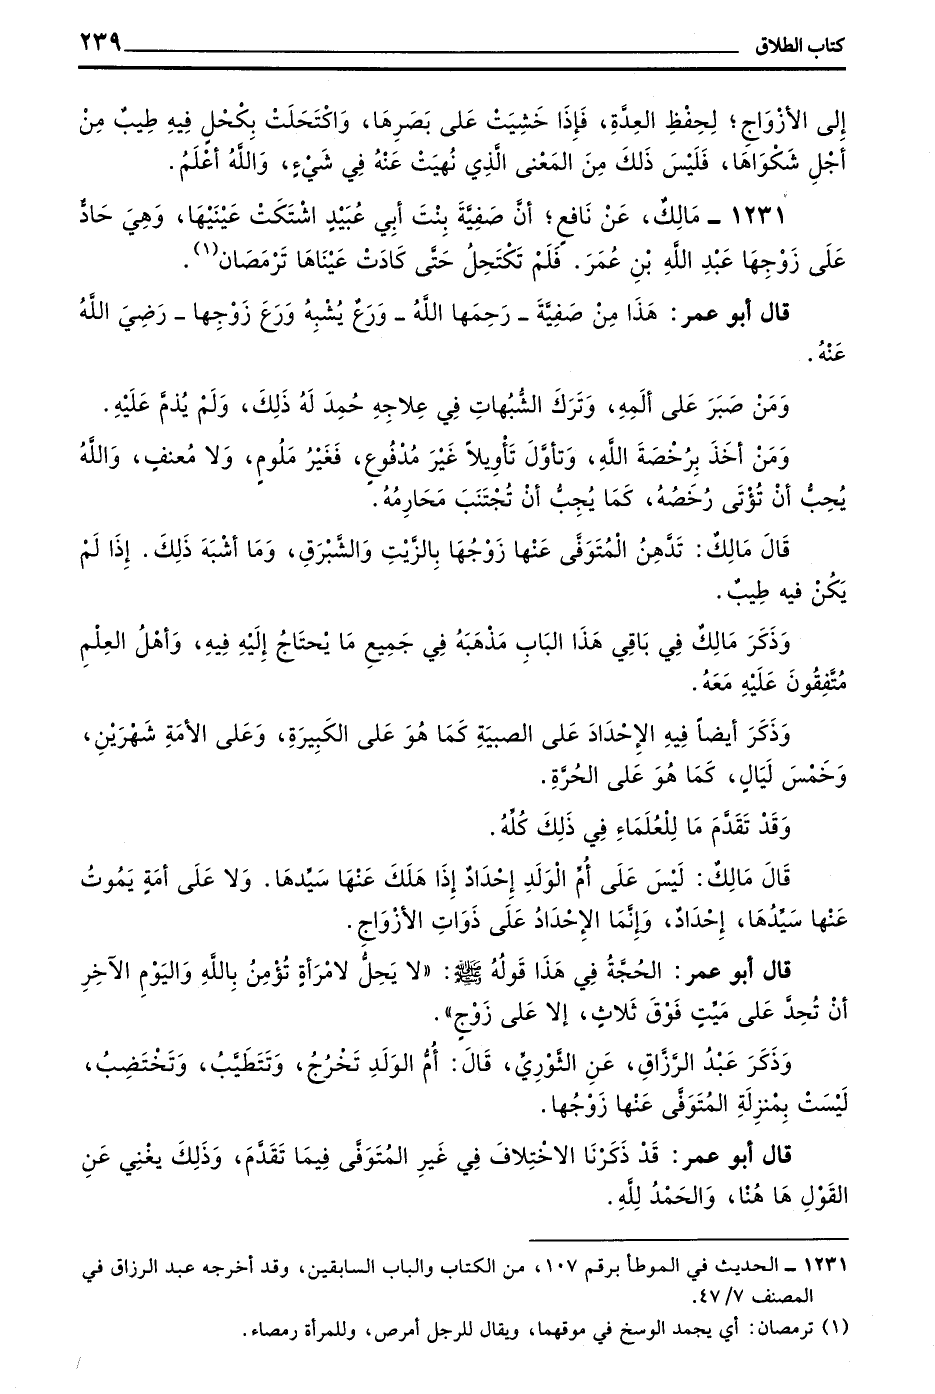 كتاب الطلاق ٢٣٩
إلى الأَزْوَاجِ؛ لِحِفْظِ العِدَّةِ، فَإِذَا خَشِيَتْ عَلى بَصَرِهَا، وَاكْتَحَلَتْ بِكُحْلٍ فِيهِ طِيبٌ مِنْ
أجْلِ شَكْوَاهَا، فَلَيْسَ ذَلكَ مِنَ المَعْنى الَّذِي نُهِيَتْ عَنْهُ فِي شَيْءٍ، وَاللَّهُ أعْلَمُ.
١٢٣١ ـ مَالِكٌ، عَنْ نَافِعٍ؛ أنَّ صَفِيَّةَ بِنْتَ أبي عُبَيْدٍ اشْتَكَتْ عَيْنَيْهَا، وَهِيَ حَادٌّ
عَلَى زَوْجِهَا عَبْدِ اللَّهِ بْنِ عُمَرَ. فَلَمْ تَكْتَحِلْ حَتَّى كَادَتْ عَيْنَاهَا تَرْمَصَان(١).
قال أبو عمر: هَذَا مِنْ صَفِيَّةَ ـ رَحِمَها اللَّهُ ـ وَرَعٌ يُشْبِهُ وَرَعَ زَوْجِها ـ رَضِيَ اللَّهُ
عَنْهُ.
وَمَنْ صَبَرَ عَلى ألَمِهِ، وَتَرَكَ الشُّبُهاتِ فِي عِلاجِهِ حُمِدَ لَهُ ذَلِكَ، وَلَمْ يُذمَّ عَلَيْهِ.
وَمَنْ أخَذَ بِرُخْصَةَ اللَّهِ، وَتأوَّلَ تَأْوِيلاً غَيْرَ مُدْفُوعٍ، فَغَيْرُ مَلُومٍ، وَلا مُعنفٍ، وَاللَّهُ
يُحِبُّ أنْ تُؤْتَى رُخَصُهُ، كَمَا يُحِبُّ أنْ تُجْتَنَبَ مَحَارِمُهُ.
قَالَ مَالِكٌ: تَدَّهِنُ الْمُتَوَفَّى عَنْها زَوْجُهَا بِالزَّيْتِ وَالشَّبْرَقِ، وَمَا أشْبَهَ ذَلِكَ. إذَا لَمْ
يَكُنْ فيه طِيبٌ.
وَذَكَرَ مَالِكٌ فِي بَاقِي هَذَا البَابِ مَذْهَبَهُ فِي جَمِيعِ مَا يُحْتاجُ إلَيْهِ فِيهِ، وَأهْلُ العِلْمِ
مُتَّفِقُونَ عَلَيْهِ مَعَهُ.
وَذَكَرَ أيضاً فِيهِ الإحْدَادَ عَلى الصبيَةِ كَمَا هُوَ عَلى الكَبِيرَةِ، وَعَلى الأمَةِ شَهْرَيْنِ،
وَخَمْسَ لَيَالٍ، كَمَا هُوَ عَلى الحُرَّةِ.
وَقَدْ تَقَدَّمَ مَا لِلْعُلَمَاءِ فِي ذَلِكَ كُلِّهُ.
قَالَ مَالِكٌ: لَيْسَ عَلَى أُمِّ الْوَلَدِ إحْدَادٌ إذَا هَلَكَ عَنْهَا سَيِّدهَا. وَلا عَلَى أمَةٍ يَمُوتُ
عَنْها سَيِّدُهَا، إحْدَادٌ، وَإنَّمَا الإحْدَادُ عَلَى ذَوَاتِ الأزْوَاجِ.
قال أبو عمر: الحُجَّةُ فِي هَذَا قَولُهُ ﷺ: «لا يَحِلُّ لامْرَأةٍ تُؤْمِنُ بِاللَّهِ وَاليَوْمِ الآخِرِ
أنْ تُحِدَّ عَلى مَيِّتٍ فَوْقَ ثَلاثٍ، إلا عَلى زَوْجٍ».
وَذَكَرَ عَبْدُ الرَّزَّاقِ، عَنِ الثَّوْرِيِّ، قَالَ: أُمُّ الوَلَدِ تَخْرُجُ، وَتَتَطَيَّبُ، وَتَخْتَضِبُ،
لَيْسَتْ بِمْنزِلَةِ المُتَوَفَّى عَنْها زَوْجُها.
قال أبو عمر: قَدْ ذَكَرْنَا الاخْتِلافَ فِي غَيرِ المُتَوَفَّى فِيمَا تَقَدَّمَ، وَذَلِكَ يغْنِي عَنِ
القَوْلِ هَا هُنْا، وَالحَمْدُ لِلَّهِ.
١٢٣١ ـ الحديث في الموطأ برقم ١٠٧، من الكتاب والباب السابقين، وقد أخرجه عبد الرزاق في
المصنف ٤٧/٧.
(١) ترمصان: أي يجمد الوسخ في موقهما، ويقال للرجل أمرص، وللمرأة رمصاء.